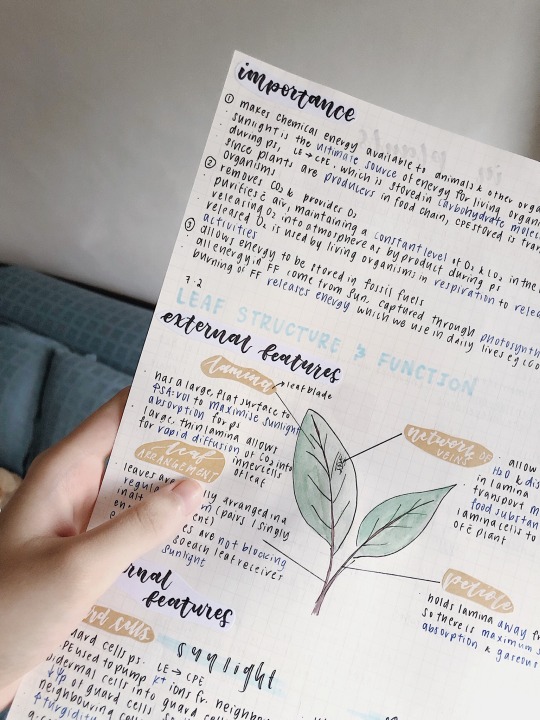 importance
① makes chemical energy available to animals & other orga
sunlight is the ultimate source of energy for living organi
during ps, LE → CPE, which is stored in carbohydrate molec
since plants are producers in food chain, CPE stored is tran
organisms
② removes CO₂ & provides O₂
purifies air, maintaining a constant level of O₂ & CO₂ in the
releasing O₂ into atmosphere as byproduct during ps
released O₂ is used by living organisms in respiration to relea
activities
③ allows energy to be stored in fossil fuels
all energy in FF come from sun, captured through photosynth
burning of FF releases energy which we use in daily lives eg
7.2
LEAF STRUCTURE & FUNCTION
external features
lamina
leaf blade
has a large, flat surface to
↑SA:vol to maximise sunlight
absorption for ps
large, thin lamina allows
for rapid diffusion of CO₂ into
inner cells
of leaf
leaf
ARRANGEMENT
leaves are
regul
(pairs / singly
in alt
en
are not blocking
so each leaf receives
sunlight
network OF
VEINS
allow
H₂O & dis
in lamina
transport m
food substan
lamina cells to
of plant
petiole
holds lamina away fr
so there is maximum s
absorption & gaseous
rnal
features
rd cells
sunlight
uard cells ps. LE → CPE
PE used to pump K⁺ ions fr. neighbour
pidermal cells into guard cel
of guard cells
neighbouring cel
↑ turgidity